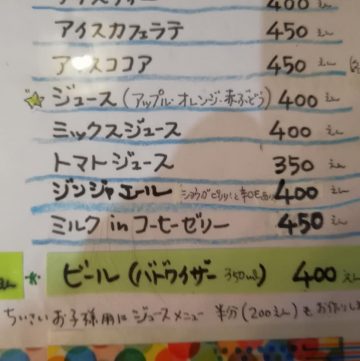 400えん
アイスカフェラテ 450えん
アイスココア 450えん
ジュース(アップル・オレンジ・赤ぶどう) 400えん
ミックスジュース 400えん
トマトジュース 350えん
ジンジャエール 400えん
ミルク in コーヒーゼリー 450えん
ビール (バドワイザー 350ml) 400えん
ちいさいお子様用にジュースメニュー 半分(200えん)も お作りし